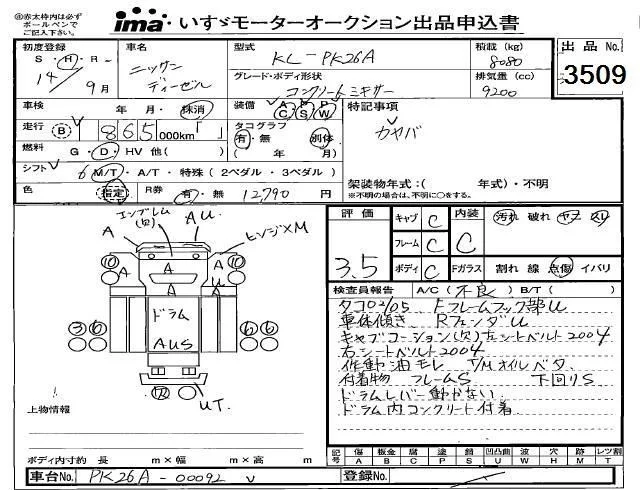 ◎赤太枠内は必ず
ボールペンで
ご記入下さい。
ima いすゞモーターオークション出品申込書
初度登録
S・H・R－
14/9月
車名
ニッサン
ディーゼル
型式
KL-PK26A
グレード・ボディ形状
コンクリートミキサー
積載 (kg)
8080
排気量 (cc)
9200
出品 No.
3509
車検 年・月・抹消
装備 A P
C S W
特記事項
カヤバ
走行 B 865,000km「 」
タコグラフ
有・無 別体
( 年 月)
燃料 G・D・HV 他( )
シフト 6 M/T・A/T・特殊 (2ペダル・3ペダル)
架装物年式：( 年式)・不明
※不明の場合は、不明に○をする。
色 指定 R券 有・無 12,790 円
エンブレム
(欠)
AU
A
ヒンジ×M
10
A
A
A
A
10
ドラム
AUS
3 6
6 6
UT
上物情報
ボディ内寸約 長 m×幅 m×高 m
評価
3.5
キャブ C
フレーム C
ボディ C
内装 C
汚れ 破れ ヤケ スリ
Fガラス 割れ 線 点傷 イバリ
検査員報告 A/C (不良) B/T ( )
タコ02/05 Fフレームフック部U
車体傾き RフェンダU
キャブコーション(欠) 左シートベルト2004
右シートベルト2004
作動油モレ T/Mオイルベタ
付着物 フレームS 下回りS
ドラムレバー動かない
ドラム内コンクリート付着
記号 傷 板金 腐 塗 錆 凹凸曲 波 穴 跡 レツ割
A B C P S U W H M T
車台No. PK26A-00092
登録No.